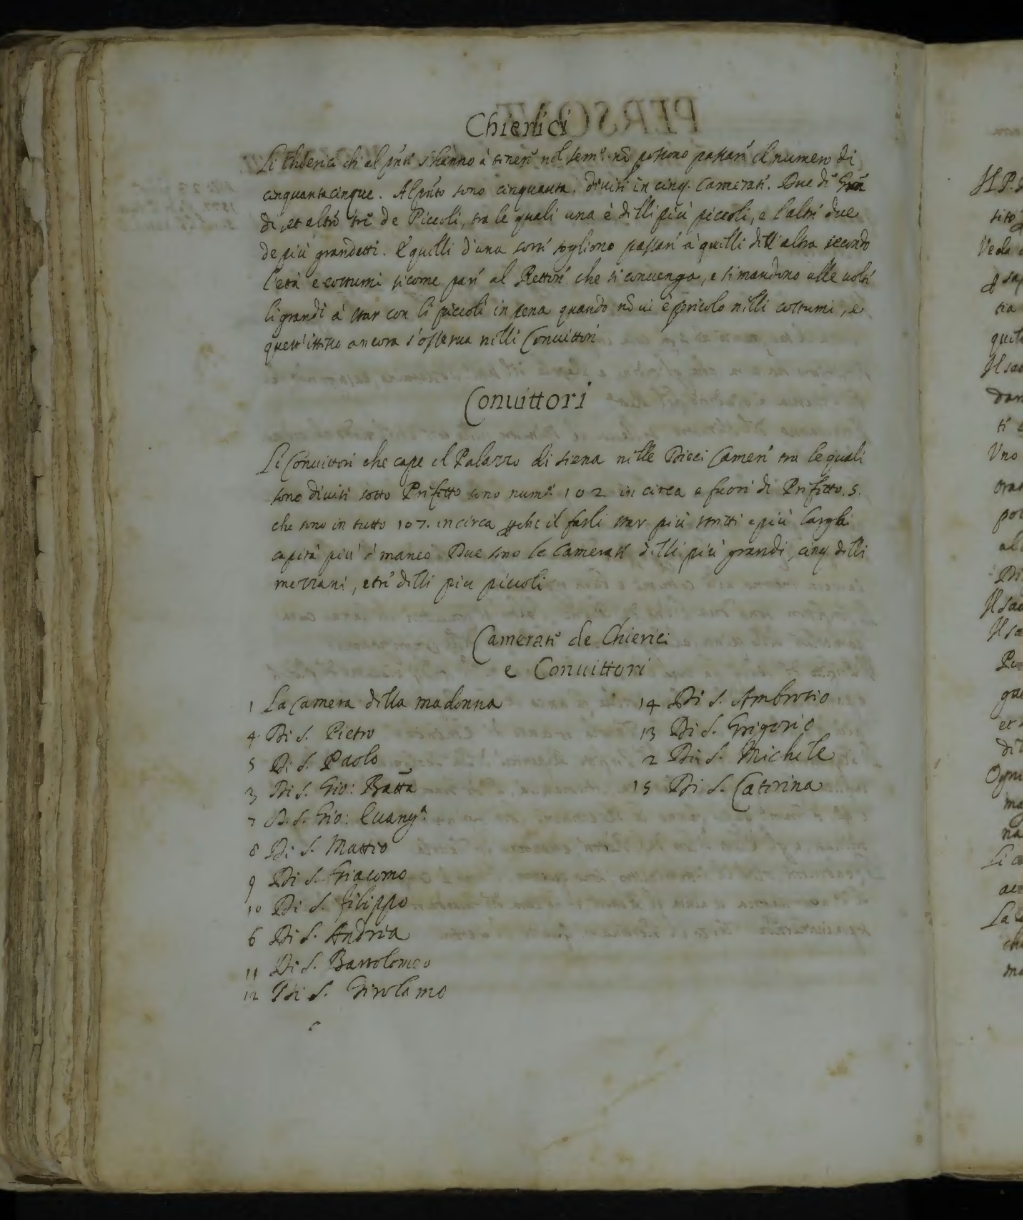 Chierici
Li Chierici ch al pñte s'hanno à tener' nel Sem.º nõ possono passar' il numero di
cinquantacinque. Al pñte sono cinquanta, divisi in cinq. Camerati. Due di Gran
di, et altre tre de Piccoli, tra le quali una è dilli più piccoli, e l'altre due
de più grandetti. E quilli d'una sogliono passar' à quilli dill'altra secondo
l'età e costumi sicome par' al Rettor' che si convenga, e si mandono alle volte
li grandi à star con li piccoli in cena quando nõ vi è pericolo nilli costumi, e
quest'istesso ancora s'osserva nilli Convittori
Convittori
Li Convittori che cape il Palazzo di Siena nille Dieci Camer' tra le quali
sono divisi sotto Prifetto sono num.º 102 in circa e fuori di Prifetto 5.
che sono in tutto 107. in circa ꝑche il farli star più stritti e più larghi
capirà più ò manco. Due sono le Camerate dilli più grandi, cinq dilli
mezzani, e tre dilli più piccoli
Camerate de Chierici
e Convittori
1 La Camera dilla madonna
4 Di S. Pietro
5 Di S. Paolo
3 Di S. Gio: Batta
7 Di S. Gio: Evang.ª
8 Di S. Matteo
9 Di S. Giacomo
10 Di S. filippo
6 Di S. Andria
11 Di S. Bartolomeo
12 Di S. Girolamo
14 Di S. Ambrosio
13 Di S. Grigorio
2 Di S. Michele
15 Di S. Catirina